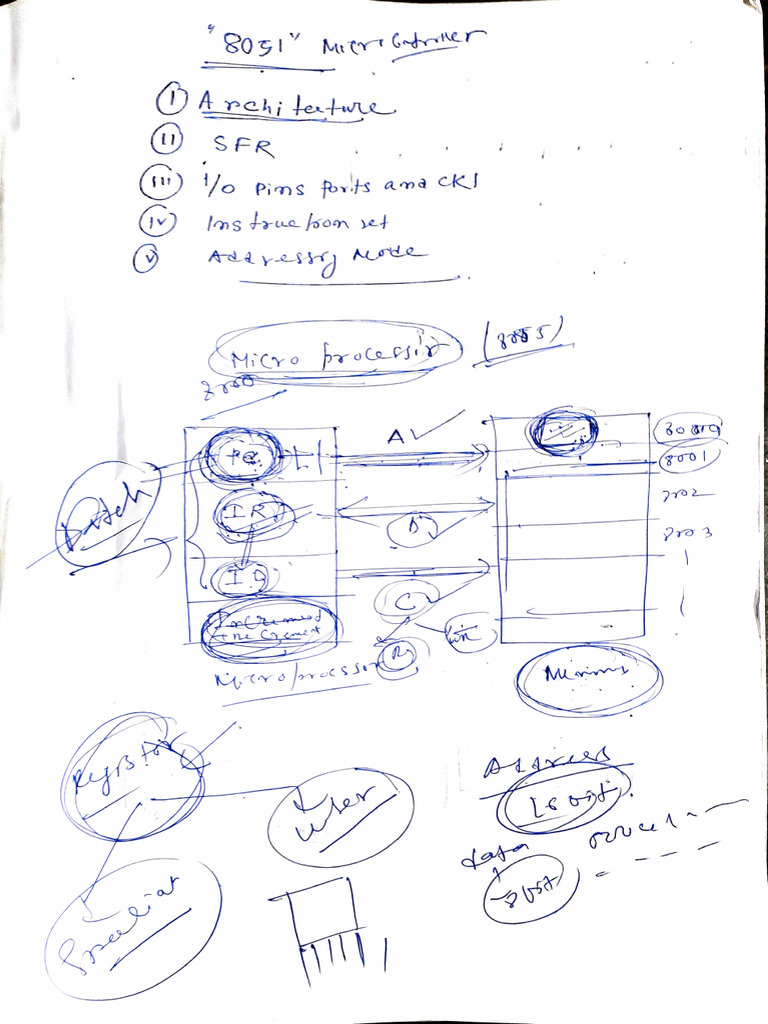 "8051" Microcontroller
I Architecture
II SFR
III I/O Pins ports and CKT
IV Instruction set
V Addressing Mode
Micro processor (8085)
8000
PC
A
8000
8001
Fetch
IR
D
8002
8003
ID
C
Increment
Microprocessor
Memory
Register
Address
User
16 bit
data
8 bit
Special